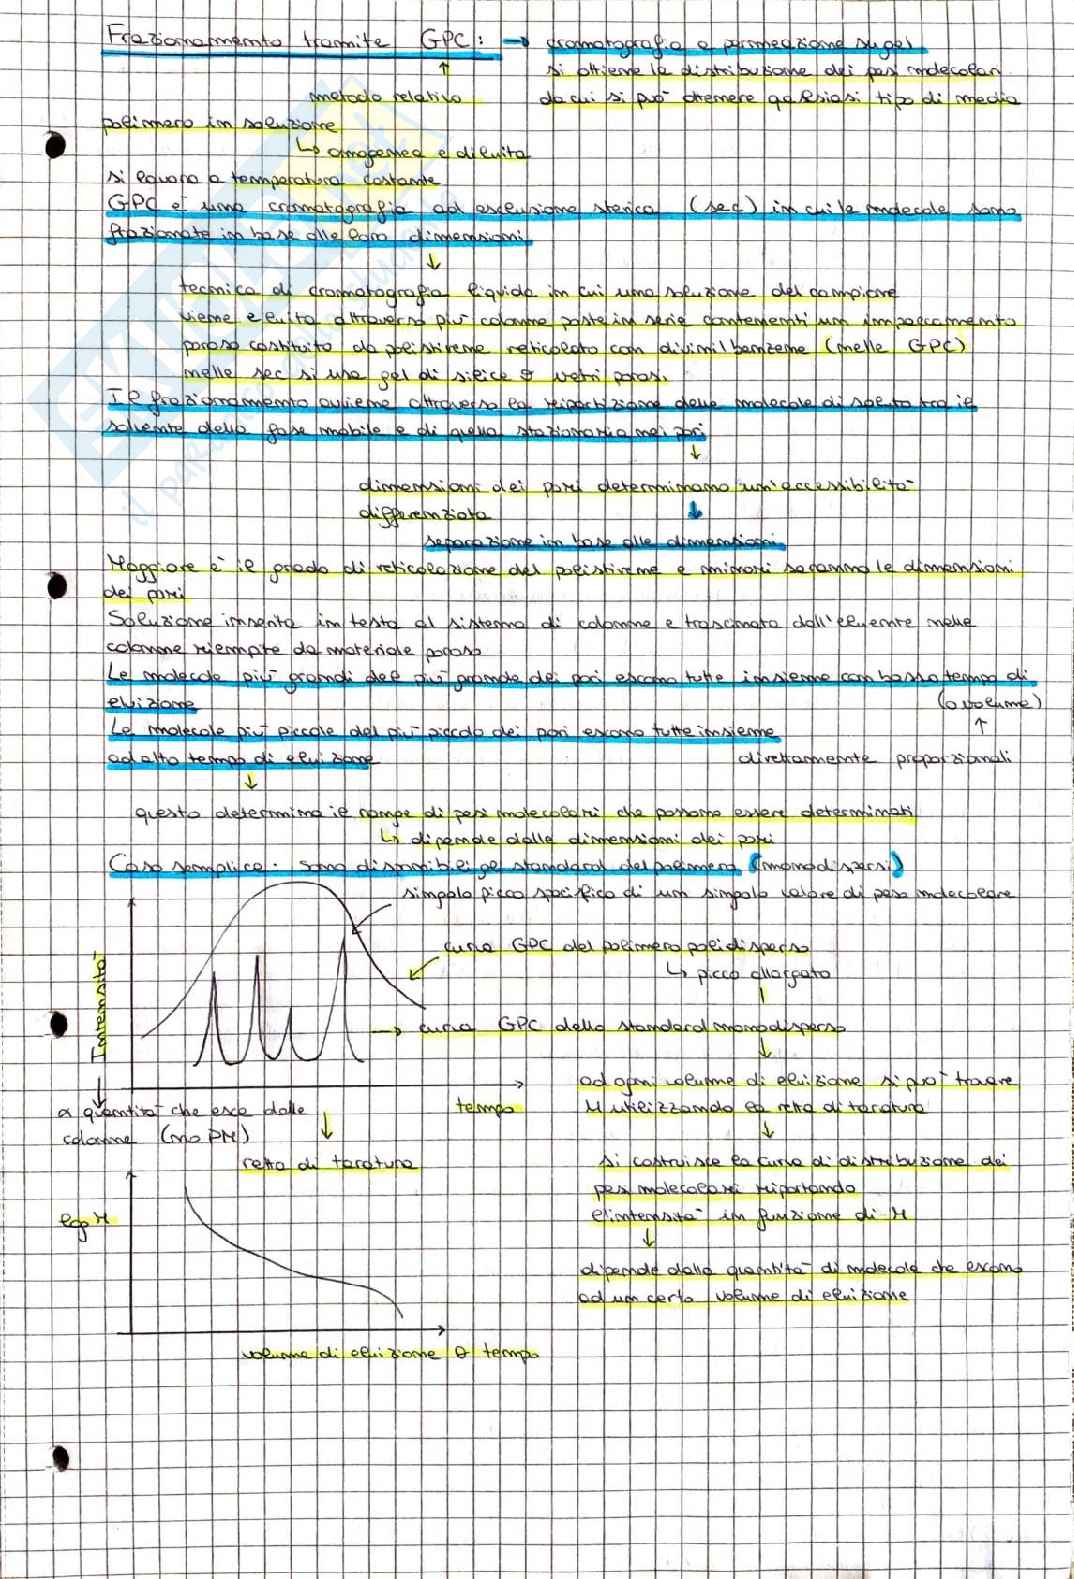 Frazionamento tramite GPC: → cromatografia a permeazione su gel
si ottiene la distribuzione dei pesi molecolari
metodo relativo
da cui si può ottenere qualsiasi tipo di media
polimero in soluzione
↳ omogenea e diluita
si lavora a temperatura costante
GPC è una cromatografia ad esclusione sterica (sec) in cui le molecole sono
frazionate in base alle loro dimensioni
tecnica di cromatografia liquida in cui una soluzione del campione
viene eluita attraverso più colonne poste in serie contenenti un impaccamento
poroso costituito da polistirene reticolato con divinilbenzene (nelle GPC)
nelle sec si usa gel di silice o vetri porosi
Il frazionamento avviene attraverso la ripartizione delle molecole di soluto tra il
solvente della fase mobile e di quella stazionaria nei pori
dimensioni dei pori determinano un'accessibilità
differenziata
separazione in base alle dimensioni
Maggiore è il grado di reticolazione del polistirene e minori saranno le dimensioni
dei pori
Soluzione inserita in testa al sistema di colonne e trascinata dall'eluente nelle
colonne riempite da materiale poroso
Le molecole più grandi del più grande dei pori escono tutte insieme con basso tempo di
eluizione
(o volume)
Le molecole più piccole del più piccolo dei pori escono tutte insieme
ad alto tempo di eluizione
direttamente proporzionali
questo determina il range di pesi molecolari che possono essere determinati
↳ dipende dalle dimensioni dei pori
Caso semplice: sono disponibili gli standard del polimero (monodispersi)
singolo picco specifico di un singolo valore di peso molecolare
curva GPC del polimero polidisperso
↳ picco allargato
Intensità
→ curva GPC dello standard monodisperso
ad ogni volume di eluizione si può trovare
α quantità che esce dalle
tempo
M utilizzando la retta di taratura
colonne (no PM)
retta di taratura
si costruisce la curva di distribuzione dei
pesi molecolari riportando
log M
l'intensità in funzione di M
dipende dalla quantità di molecole che escono
ad un certo volume di eluizione
volume di eluizione o tempo